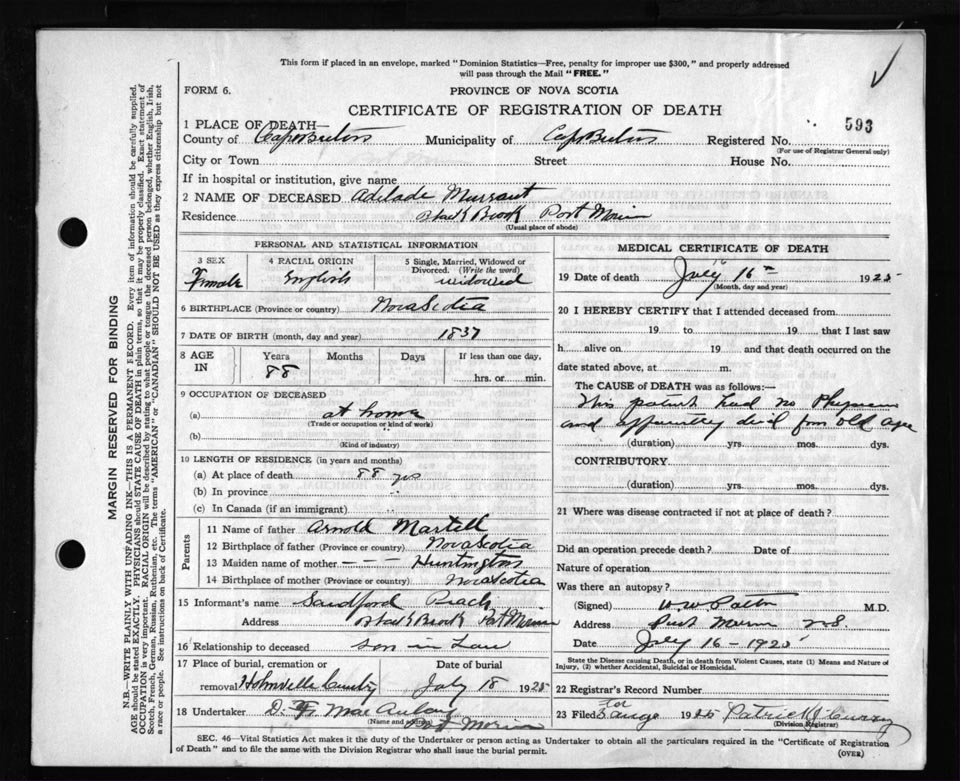 This form if placed in an envelope, marked "Dominion Statistics—Free, penalty for improper use $300," and properly addressed
will pass through the Mail "FREE."
FORM 6. PROVINCE OF NOVA SCOTIA
CERTIFICATE OF REGISTRATION OF DEATH
1 PLACE OF DEATH—
County of Cape Breton Municipality of Cape Breton Registered No. 593
(For use of Registrar General only)
City or Town Street House No.
If in hospital or institution, give name
2 NAME OF DECEASED Adelade Murrant
Residence Black Brook Port Morien
(Usual place of abode)
PERSONAL AND STATISTICAL INFORMATION
3 SEX 4 RACIAL ORIGIN 5 Single, Married, Widowed or
Divorced. (Write the word)
Female English widowed
6 BIRTHPLACE (Province or country) Nova Scotia
7 DATE OF BIRTH (month, day and year) 1837
8 AGE IN Years Months Days If less than one day,
88 hrs. or min.
9 OCCUPATION OF DECEASED
(a) at home
(Trade or occupation or kind of work)
(b)
(Kind of industry)
10 LENGTH OF RESIDENCE (in years and months)
(a) At place of death 88 yrs
(b) In province
(c) In Canada (if an immigrant)
Parents
11 Name of father Arnold Martell
12 Birthplace of father (Province or country) Nova Scotia
13 Maiden name of mother — — — Huntington
14 Birthplace of mother (Province or country) Nova Scotia
15 Informant's name Sandford Peach
Address Black Brook Port Morien
16 Relationship to deceased son in Law
17 Place of burial, cremation or Date of burial
removal Homeville Cemetry July 18 1925
18 Undertaker D. MacAulay
(Name and address) Port Morien
MEDICAL CERTIFICATE OF DEATH
19 Date of death July 16th 1925
16
(Month, day and year)
20 I HEREBY CERTIFY that I attended deceased from
19 to 19 that I last saw
h alive on 19 and that death occurred on the
date stated above, at m.
The CAUSE of DEATH was as follows:—
This patent had no Physician
and apparently died from old age
(duration) yrs. mos. dys.
CONTRIBUTORY
(duration) yrs. mos. dys.
21 Where was disease contracted if not at place of death?
Did an operation precede death? Date of
Nature of operation
Was there an autopsy?
(Signed) W W Patton M.D.
Address Port Morien NS
Date July 16 - 1925
State the Disease causing Death, or in death from Violent Causes, state (1) Means and Nature of
Injury, (2) whether Accidental, Suicidal or Homicidal.
22 Registrar's Record Number
23 Filed 1925 Patrick J Curry
(Division Registrar)
SEC. 46—Vital Statistics Act makes it the duty of the Undertaker or person acting as Undertaker to obtain all the particulars required in the "Certificate of Registration
of Death" and to file the same with the Division Registrar who shall issue the burial permit.
(OVER)
MARGIN RESERVED FOR BINDING
N.B.—WRITE PLAINLY WITH UNFADING INK—THIS IS A PERMANENT RECORD. Every item of information should be carefully supplied.
AGE should be stated EXACTLY. PHYSICIANS should STATE CAUSE OF DEATH in plain terms, so that it may be properly classified. Exact statement of
OCCUPATION is very important. RACIAL ORIGIN will be described by stating to what people or tongue the deceased person belonged, whether English, Irish,
Scotch, French, German, Russian, Ruthenian, etc. The terms "AMERICAN" or "CANADIAN" SHOULD NOT BE USED as they express citizenship but not
a race or people. See instructions on back of Certificate.